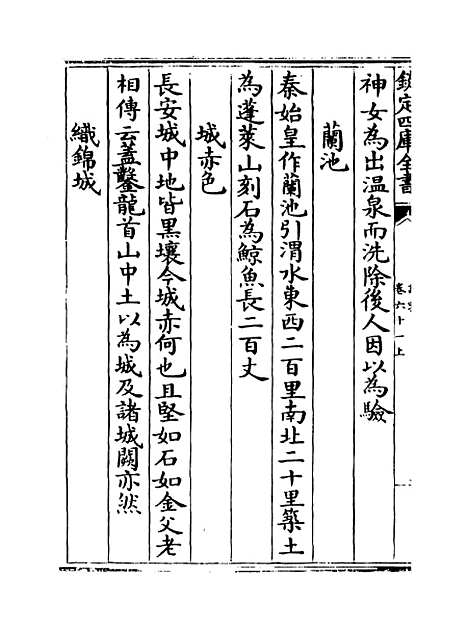 欽定四庫全書
卷六十一上
神女為出温泉而洗除後人因以為驗
蘭池
秦始皇作蘭池引渭水東西二百里南北二十里築土
為蓬萊山刻石為鯨魚長二百丈
城赤色
長安城中地皆黑壤今城赤何也且堅如石如金父老
相傳云蓋鑿龍首山中土以為城及諸城闕亦然
織錦城